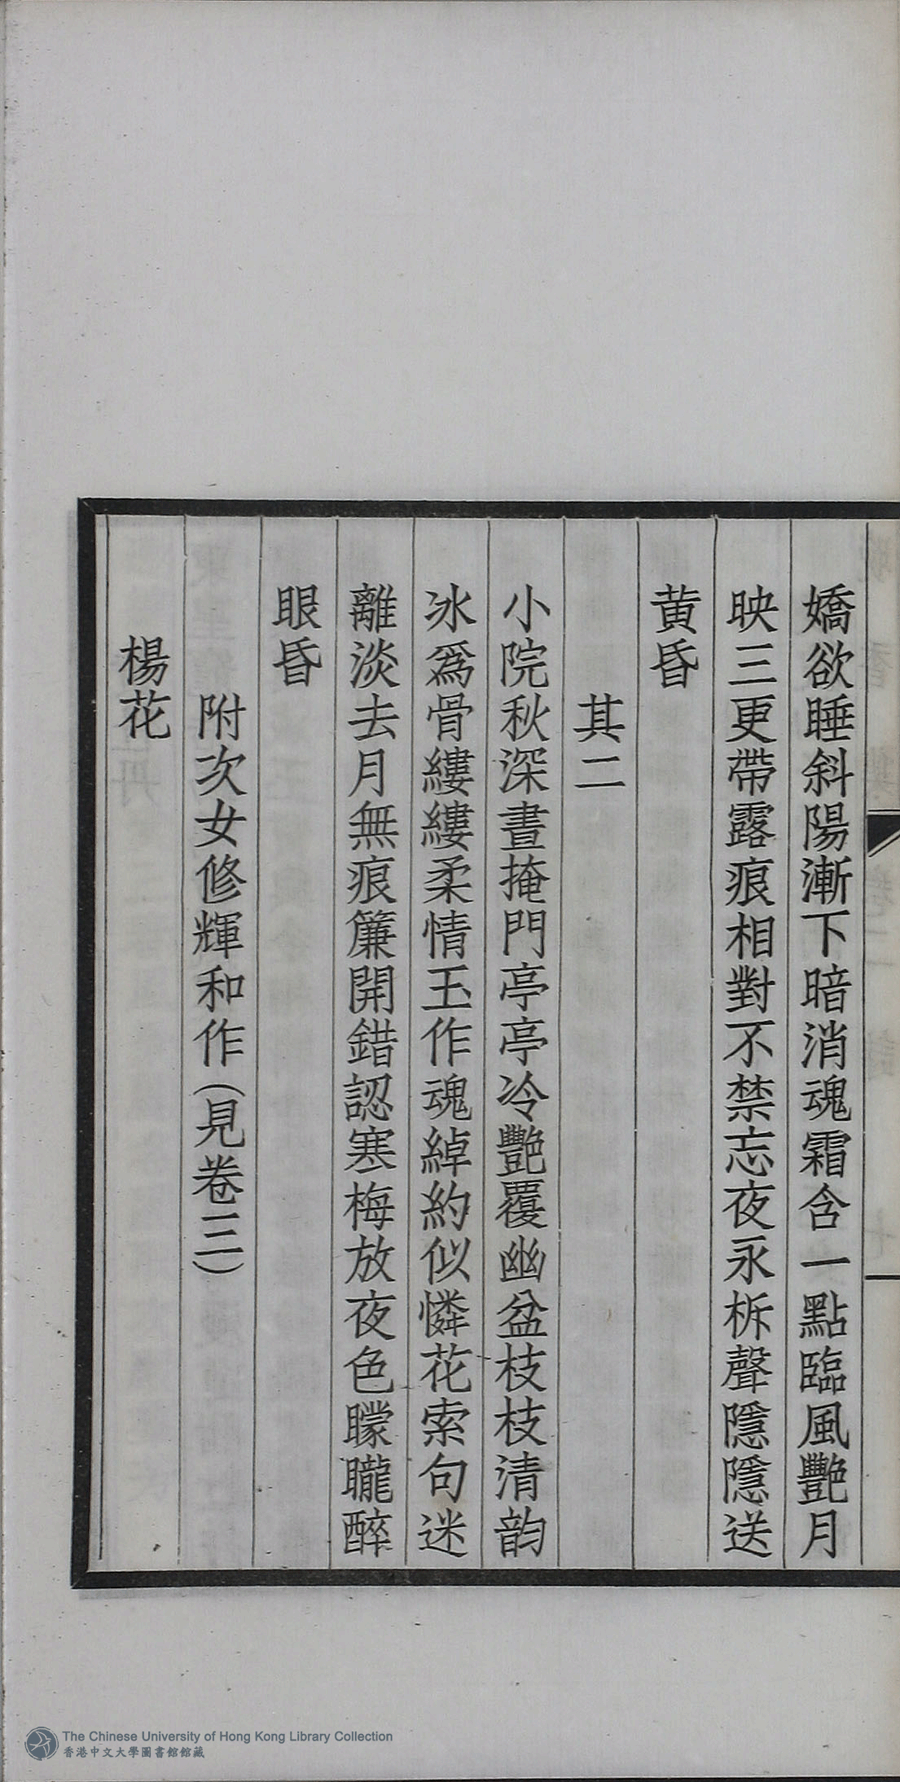 嬌欲睡斜陽漸下暗消魂霜含一點臨風艷月
映三更帶露痕相對不禁忘夜永柝聲隱隱送
黄昏
其二
小院秋深晝掩門亭亭冷艷覆幽盆枝枝清韵
冰爲骨縷縷柔情玉作魂綽約似憐花索句迷
離淡去月無痕簾開錯認寒梅放夜色矇矓醉
眼昏
附次女修輝和作(見卷三)
楊花
The Chinese University of Hong Kong Library Collection
香港中文大學圖書館館藏